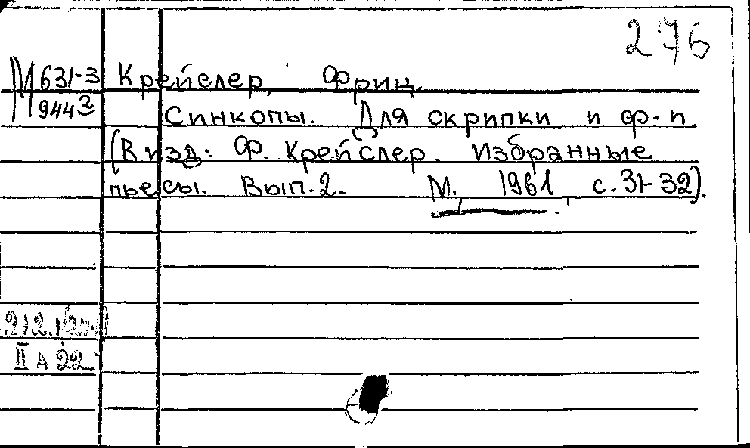 276
М631-3 Крейслер, Фриц.
944² Синкопы. Для скрипки и ф-п
(В изд: Ф. Крейслер. Избранные
пьесы. Вып. 2. М. 1961 с. 31-32).
II А 22